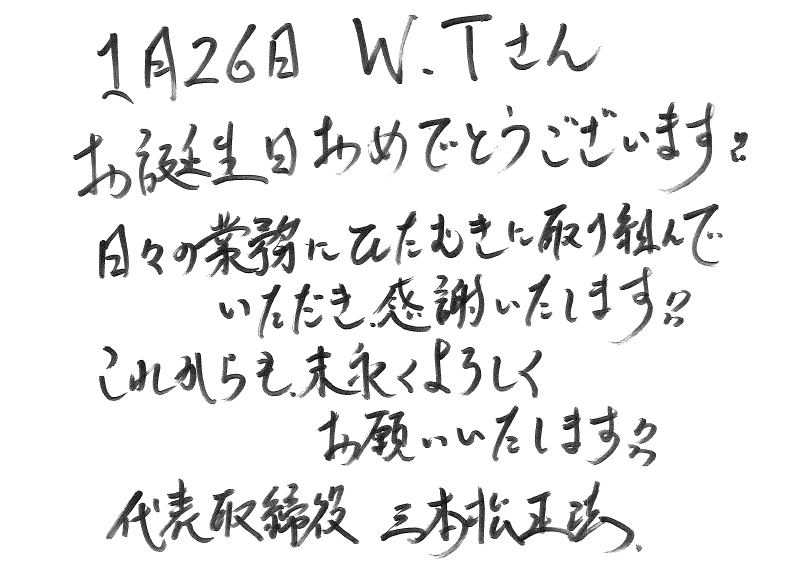 1月26日 W.Tさん
お誕生日おめでとうございます!!
日々の業務にひたむきに取り組んで
いただき、感謝いたします!!
これからも、末永くよろしく
お願いいたします!!
代表取締役 三本松正